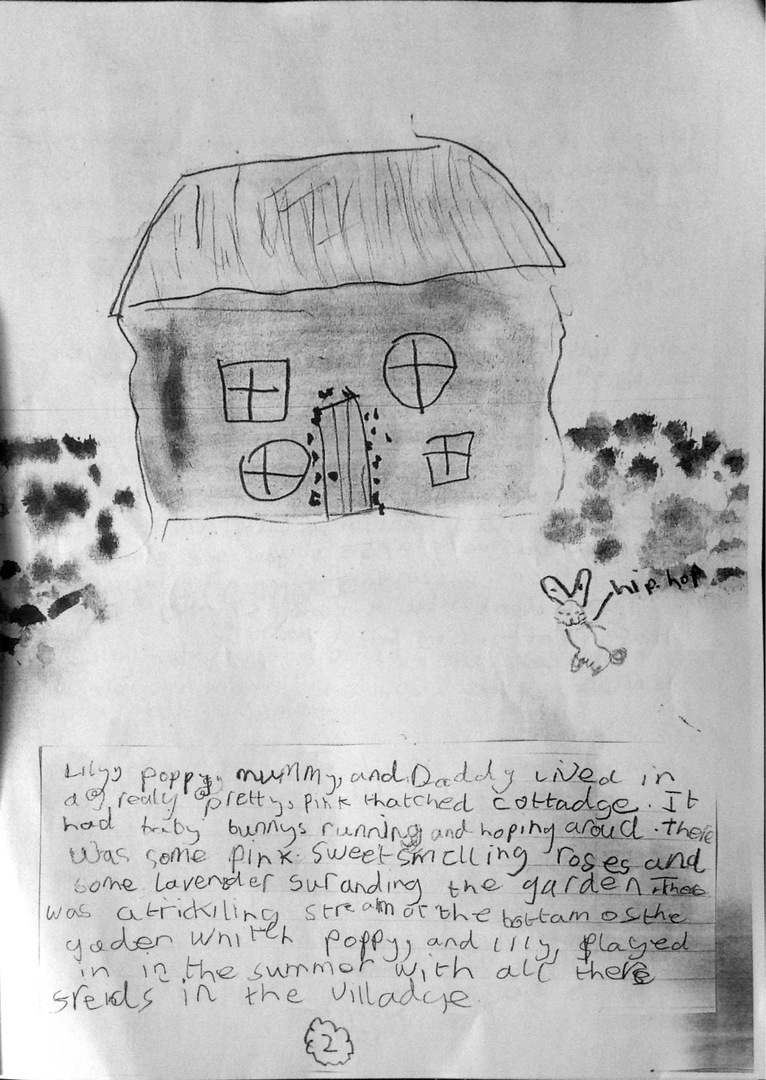 hip.hop
Lily, poppy, mummy, and Daddy lived in
a realy pretty, pink thatched cottadge. It
had baby bunnys running and hoping aroud. there
was some pink sweet smelling roses and
some lavender suranding the garden. Thee
was a trickiling stream at the bottam os the
gaden whitch poppy, and lily, played
in in the summer with all there
sreids in the villadge.
2